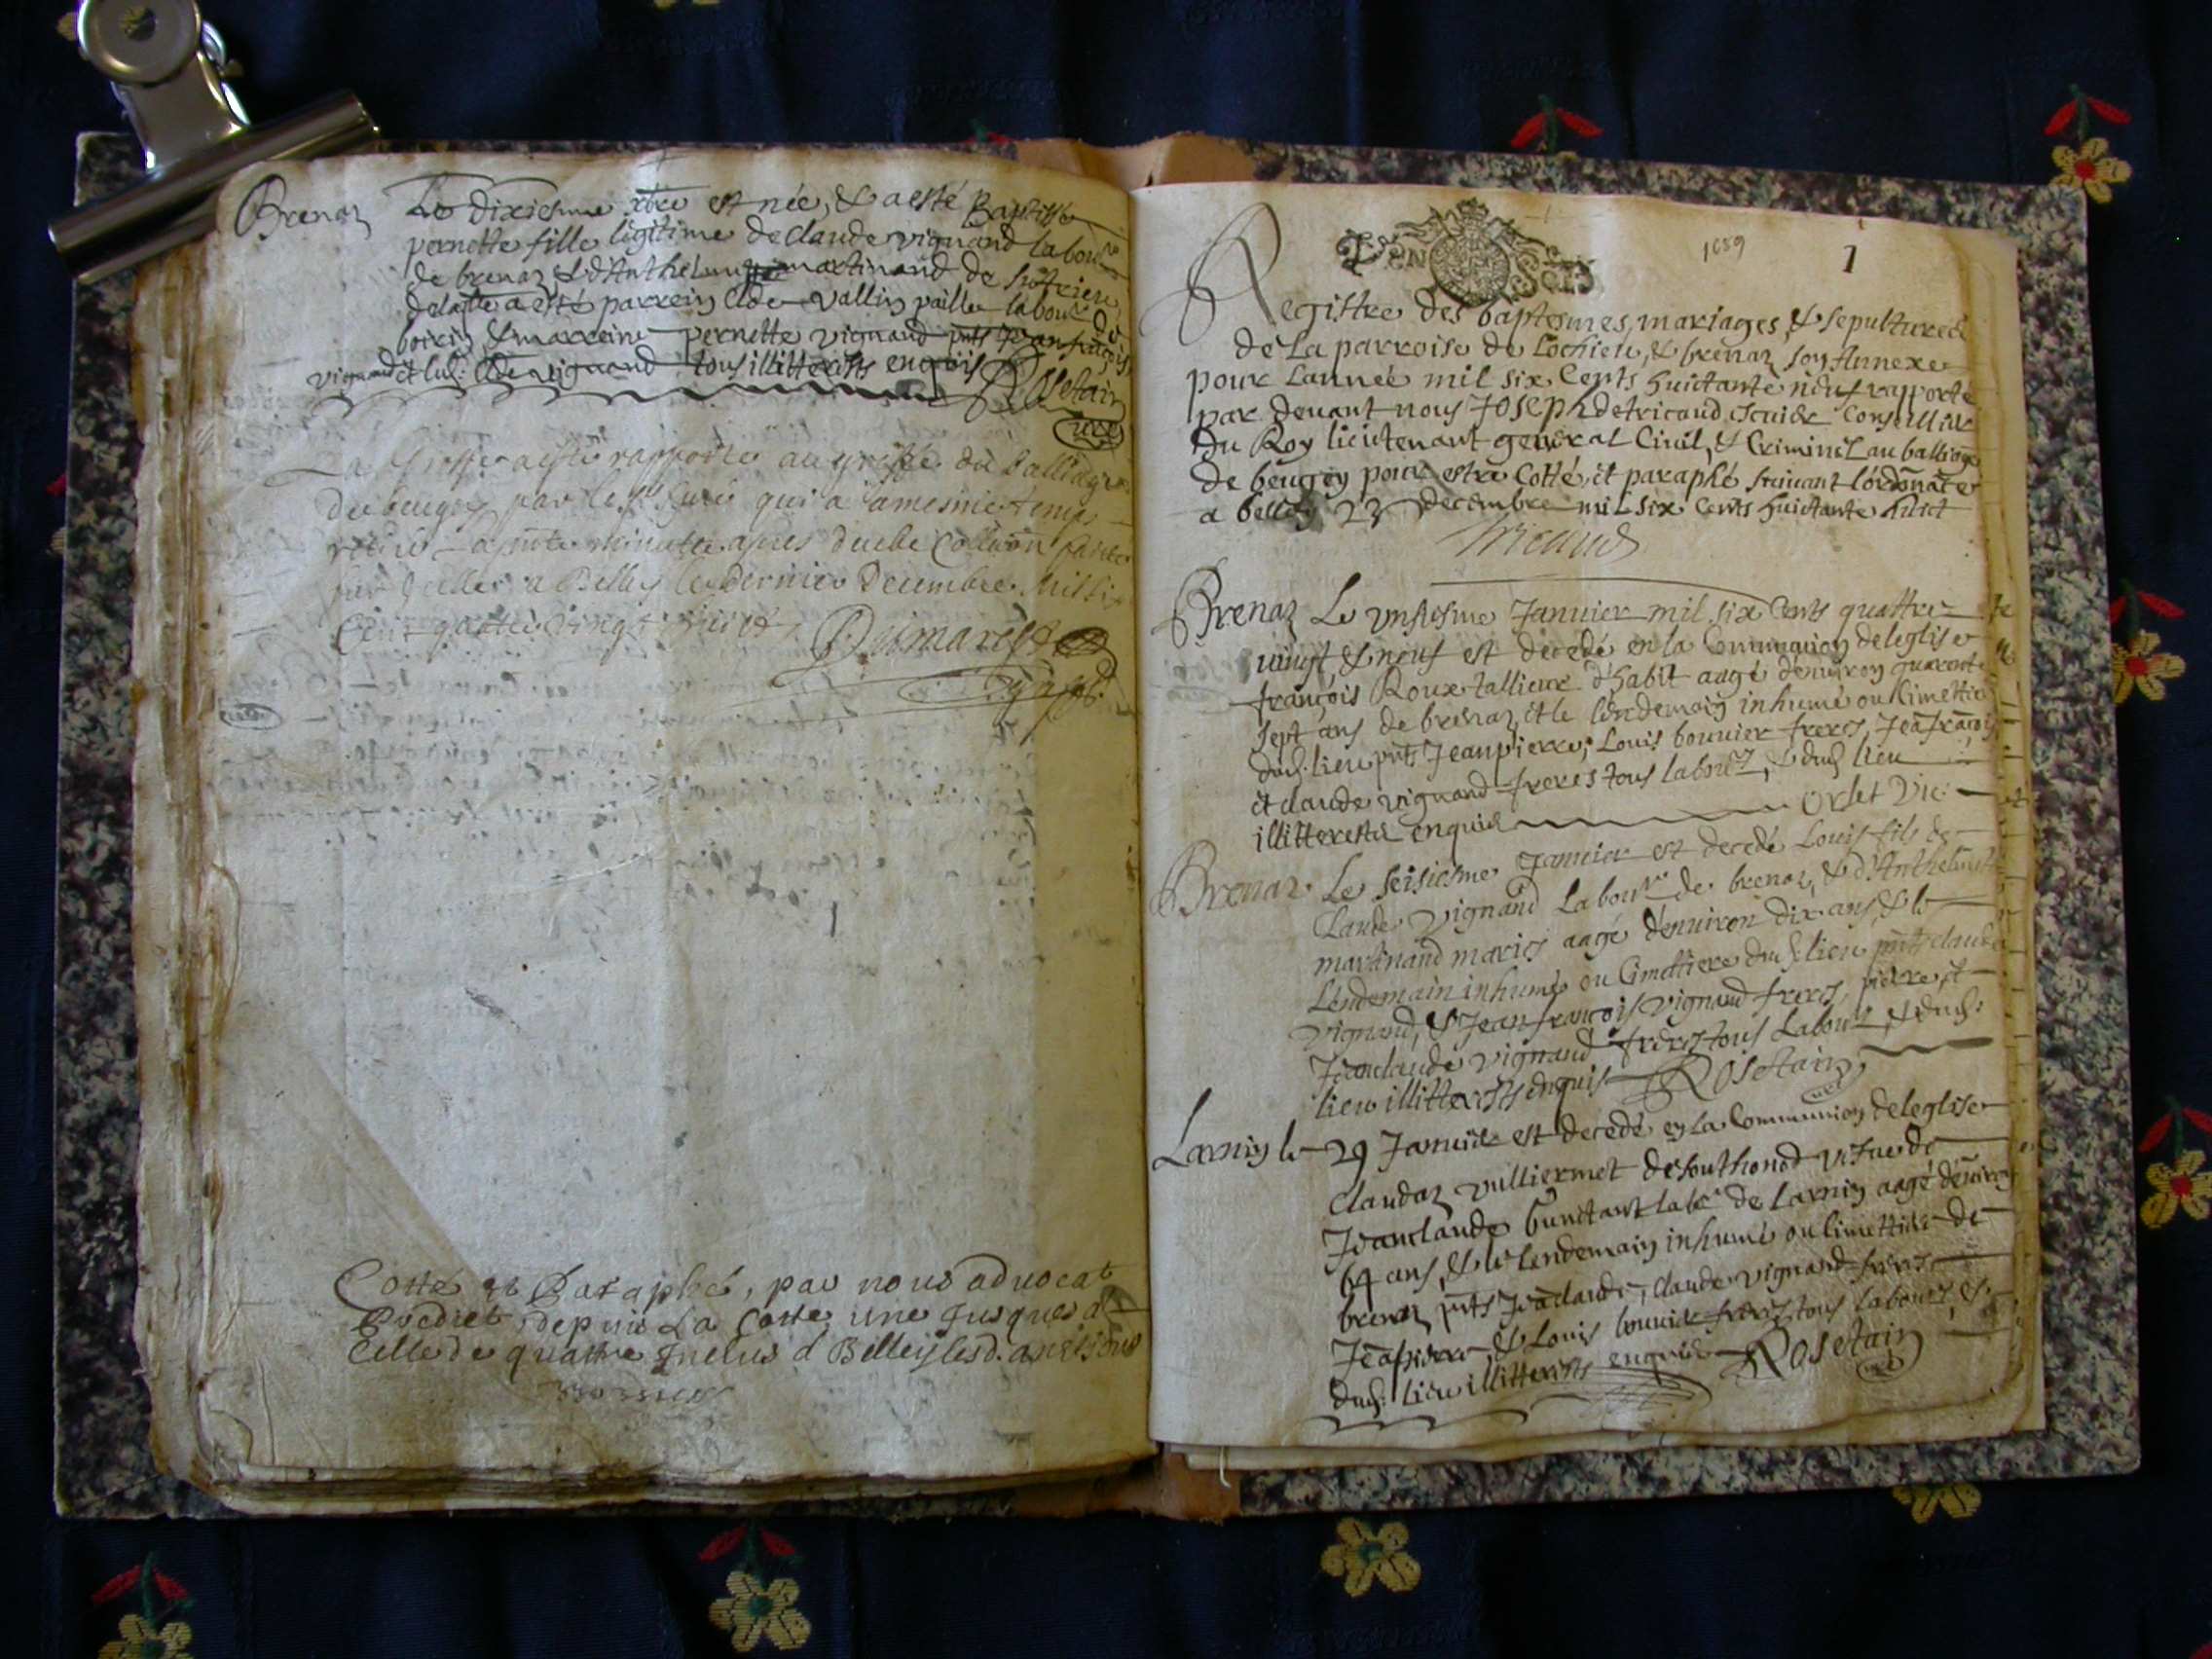 Brenaz Le dixiesme xbre est née, & a esté Baptisée
pernette fille legitime de claude vignand labour
de brenaz & d'Anthelmyne martinand de
a esté parrein Clde vallin labour de
boirin & marreine pernette vignand pnts Jean françois
vignand et lud: Clde vignand tous illitterés enquis Rosetain
curé
La Grosse a esté rapportée au greffe du balliage
de beugey par le Sr Curé qui a a mesme temps
retiré la pnte minutte apres deube Collaon faicte
sur Icelle a Belley le dernier Decembre Mil Six
Cent quatre vingt huict Desmarest
Cotté et Paraphé, par nous advocat
Predict depuis La Cotte une Jusques a
Celle de quatre Inclus A Belley les d. an & jour
1689
1
DEN SOLS
Registre des baptesmes, mariages, & sepultures
de La parroise de Lochieu, & brenaz son Annexe
pour L'année mil six Cents huictante neuf rapporté
par devant nous Joseph detricaud escuier Conseillier
du Roy lieutenant general Civil, & Criminel au balliage
de beugey pour estre Cotté, et paraphé suivant l'ordonnance
a belley 23 decembre mil six Cents huictante huict
Tricaud
Brenaz Le unsiesme Janvier mil six Cents quattre
vingt & neuf est decedé en la Communion de leglise
françois Roux tallieur d'habit aagé d'environ quarente
sept ans de brenaz et le lendemain inhumé ou Cimettiere
dud. lieu pnts Jeanpierre, Louis bouvier freres, Jeã françois
et claude vignand freres tous labours, & dud lieu
illitterés enquis Orset Vic:
Brenaz Le seisiesme Janvier est decedé Louis fils de
Claude Vignand Labour de brenaz, & d'Anthelmyne
martinand mariés aagé d'environ dix ans, & le
Lendemain inhumé ou Cimettiere dud. lieu pnts claude
Vignand, & Jean françois Vignand freres, pierre, et
Jean claude vignand freres tous Labours, & dud:
lieu illitterés enquis Rosetain
curé
Larnin le 29 Janvier est decedé en La Communion de leglise
Claudaz vulliermet de southonod vefve de
Jeanclaude labr de Larnin aagé d'environ
64 ans, & le lendemain inhumé ou Cimettiere de
brenaz pnts Jeãclaude, claude vignand freres
Jeãpierre, & Louis bouvier freres tous labours, &
dud: lieu illitterés enquis Rosetain
curé